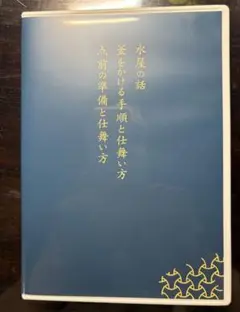 水屋の話
釜をかける手順と仕舞い方
点前の準備と仕舞い方